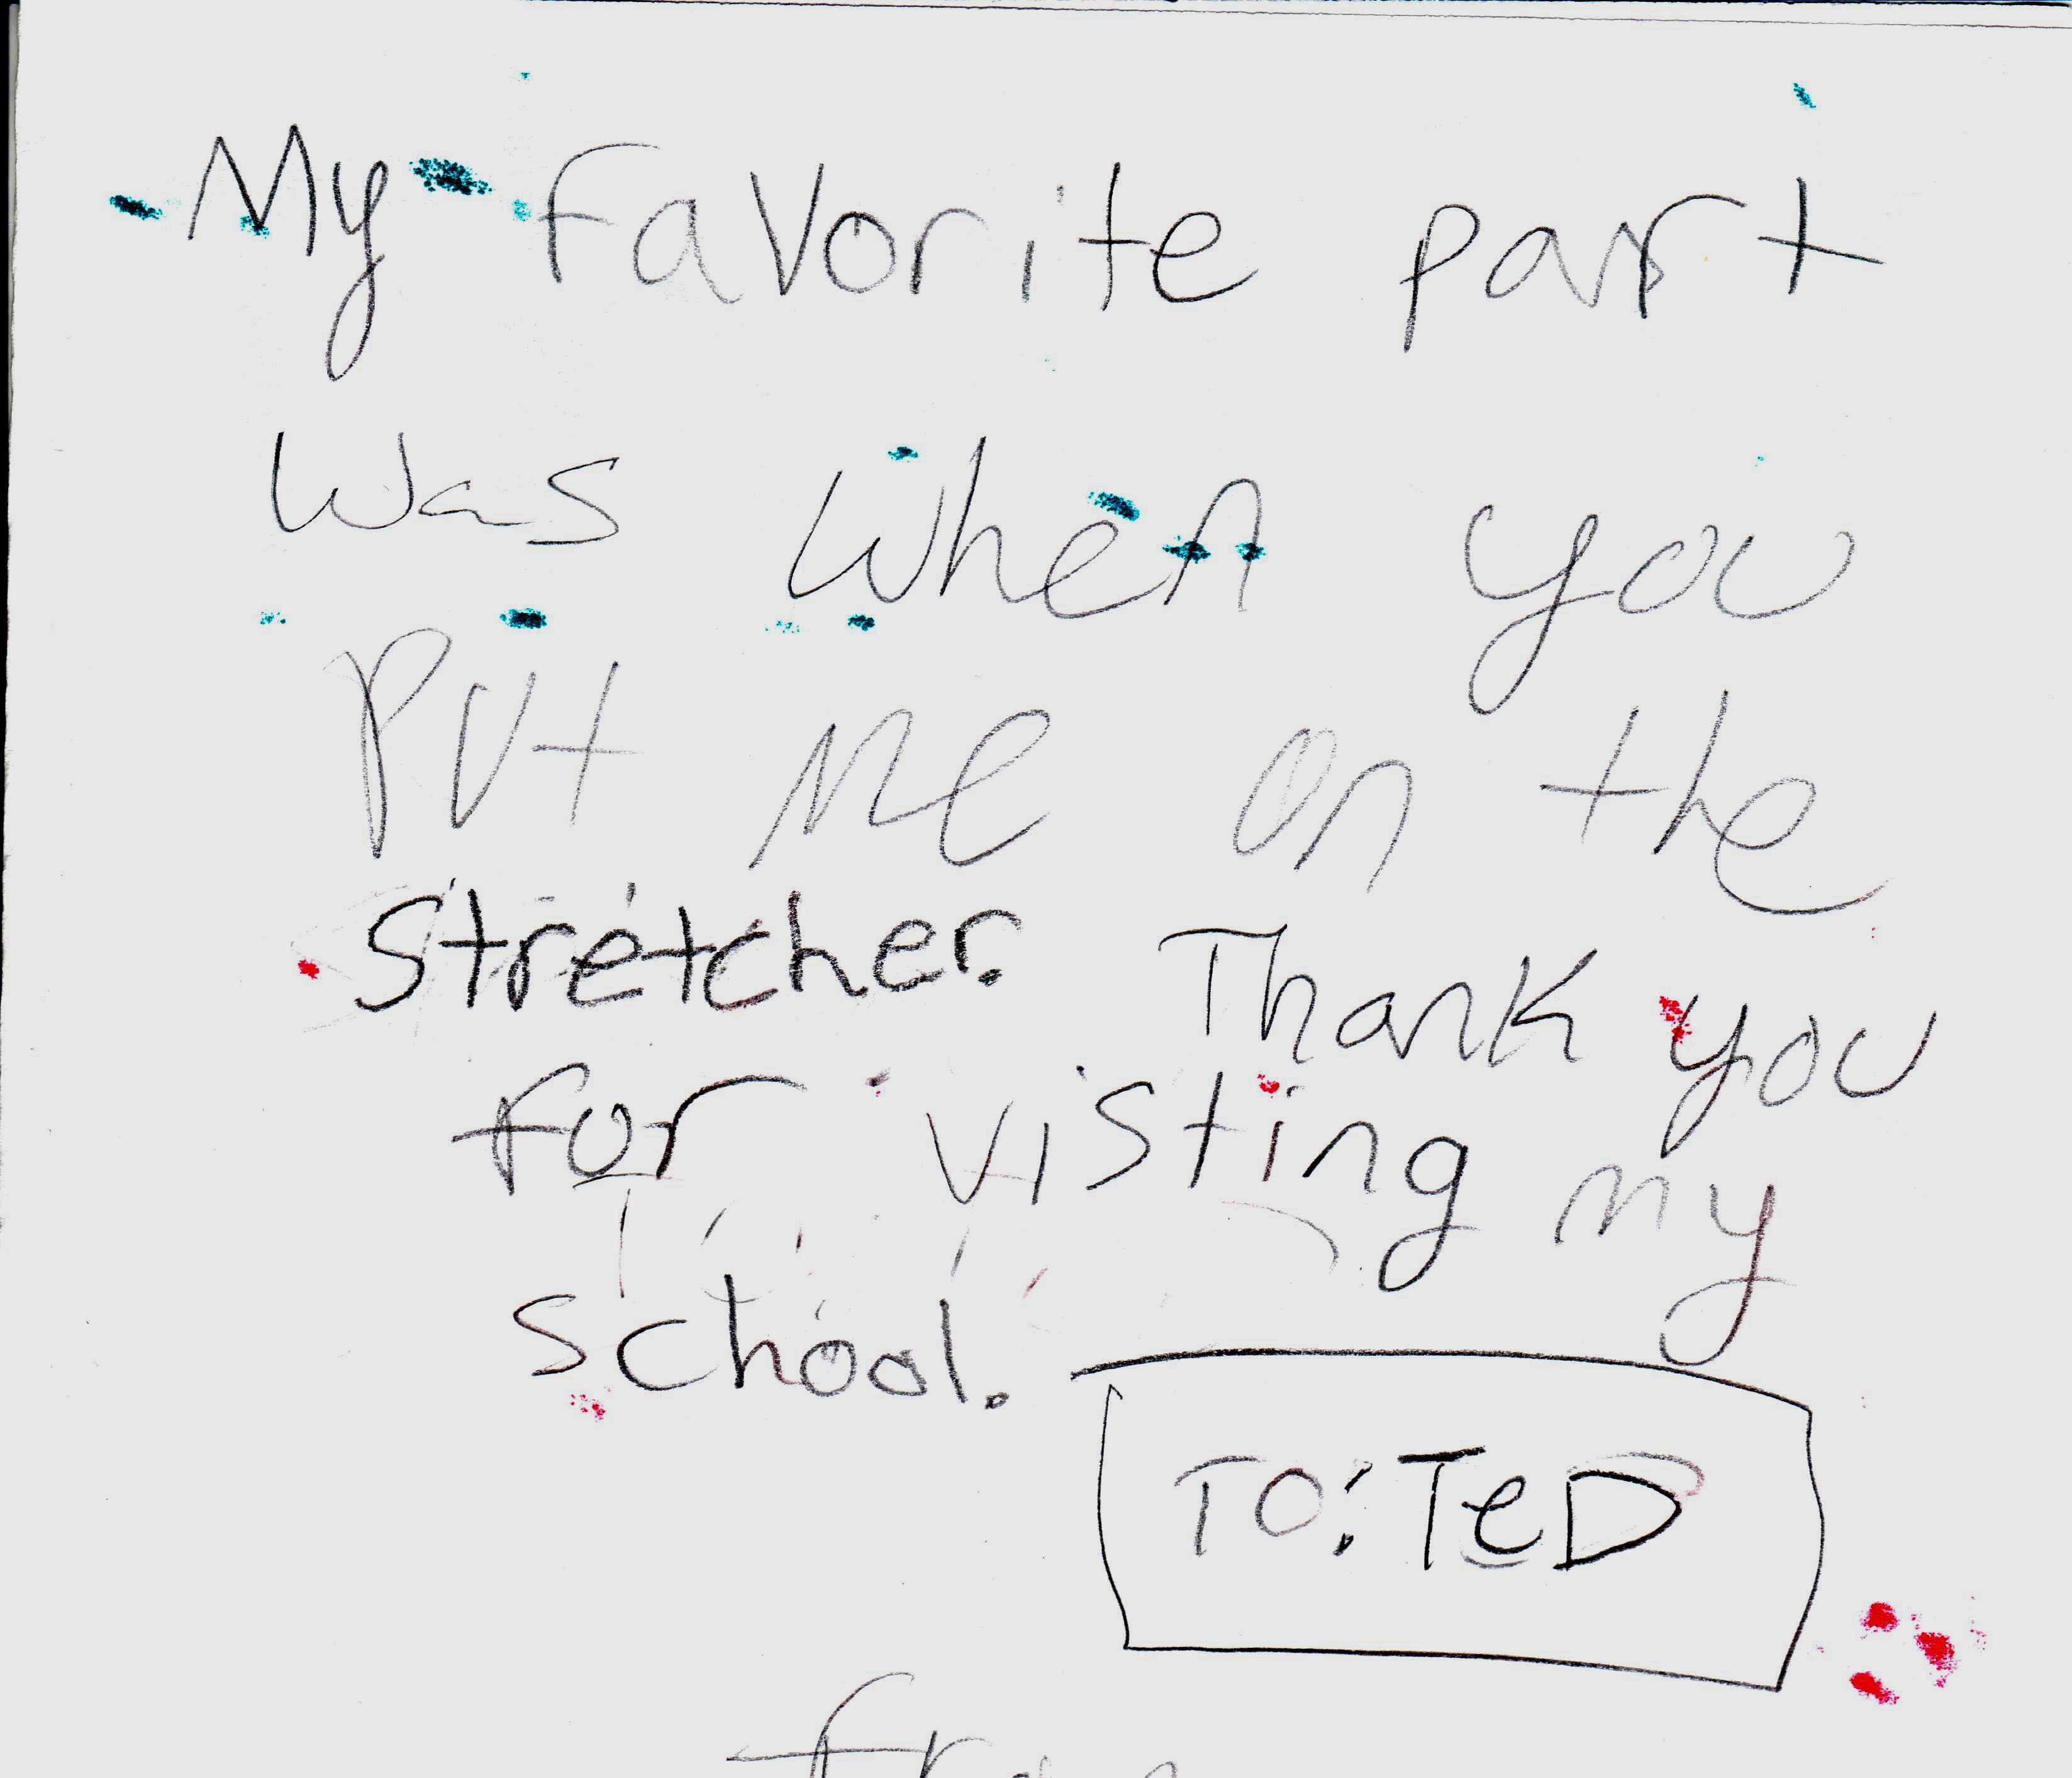 My favorite part
was when you
Put me on the
Stretcher. Thank you
for visting my
school.
TO: TeD